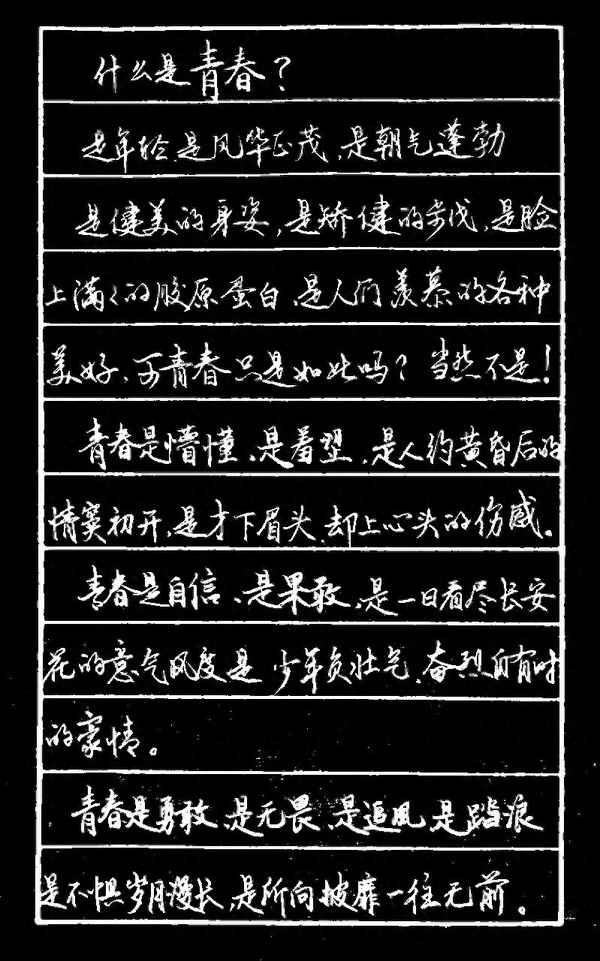 什么是青春？
是年轻，是风华正茂，是朝气蓬勃
是健美的身姿，是矫健的步伐，是脸
上满满的胶原蛋白、是人们羡慕的各种
美好、可青春只是如此吗？当然不是！
青春是懵懂、是羞涩，是人约黄昏后的
情窦初开，是才下眉头，却上心头的伤感。
青春是自信、是果敢，是一日看尽长安
花的意气风度是少年负壮气、奋烈自有时
的豪情。
青春是勇敢、是无畏、是追风、是踏浪
是不惧岁月漫长，是所向披靡一往无前。